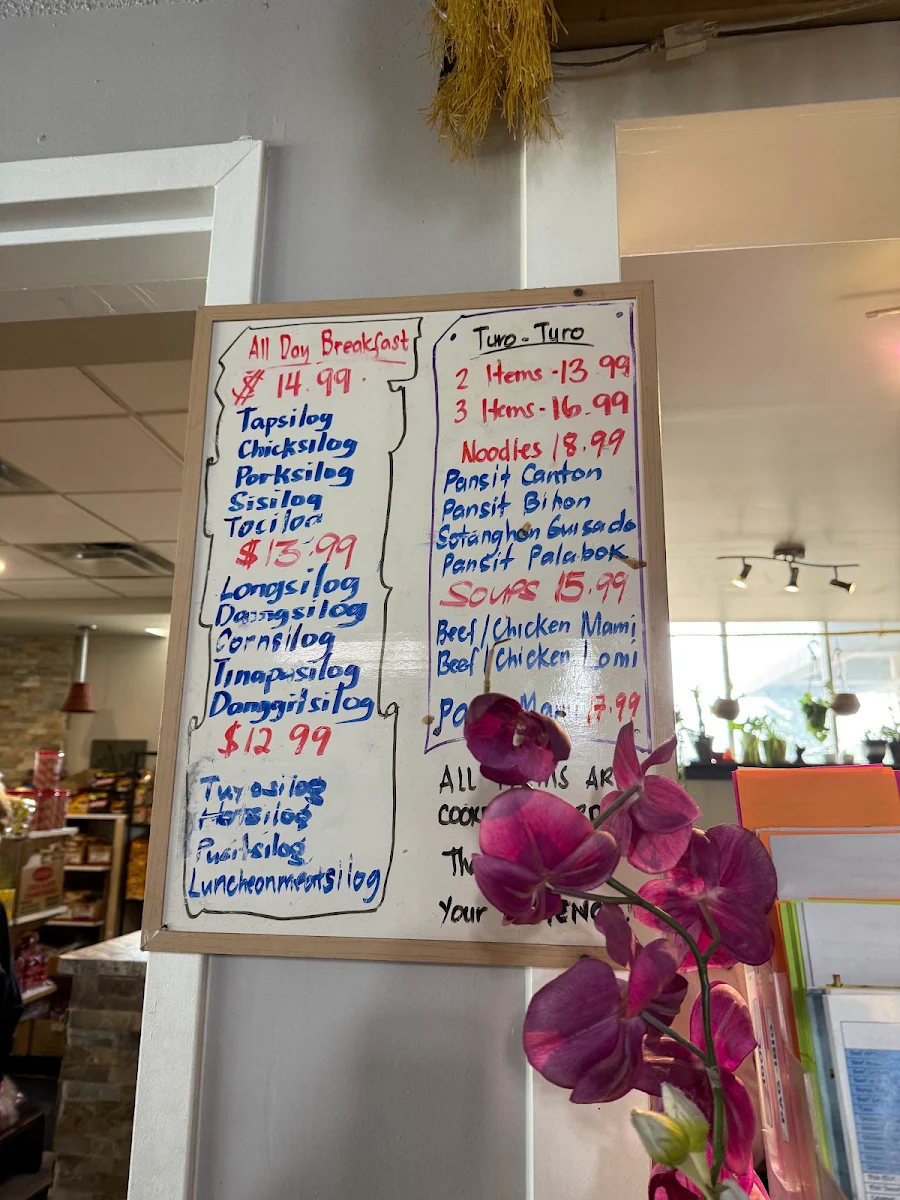 All Day Breakfast
$ 14.99
Tapsilog
Chicksilog
Porksilog
Sisilog
Tocilog
$13.99
Longsilog
Dangsilog
Cornsilog
Tinapasilog
Danggitsilog
$12.99
Tuyosilog
Hotsilog
Pusitsilog
Luncheonmeatsilog
Turo-Turo
2 Items - 13.99
3 Items - 16.99
Noodles 18.99
Pansit Canton
Pansit Bihon
Sotanghon Guisado
Pansit Palabok
Soups 15.99
Beef/Chicken Mami
Beef/Chicken Lomi
17.99
ALL
Your